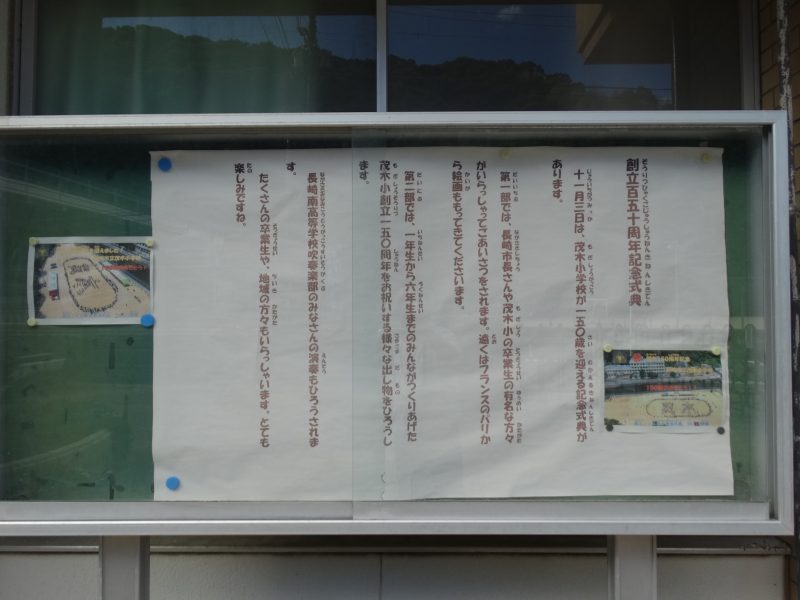 創立百五十周年記念式典
十一月三日は、茂木小学校が一五〇歳を迎える記念式典が
あります。
第一部では、長崎市長さんや茂木小の卒業生の有名な方々
がいらっしゃってごあいさつをされます。遠くはフランスのパリか
ら絵画ももってきてくださいます。
第二部では、一年生から六年生までのみんながつくりあげた
茂木小創立一五〇周年をお祝いする様々な出し物をひろうし
ます。
長崎南高等学校吹奏楽部のみなさんの演奏もひろうされま
す。
たくさんの卒業生や、地域の方々もいらっしゃいます。とても
楽しみですね。